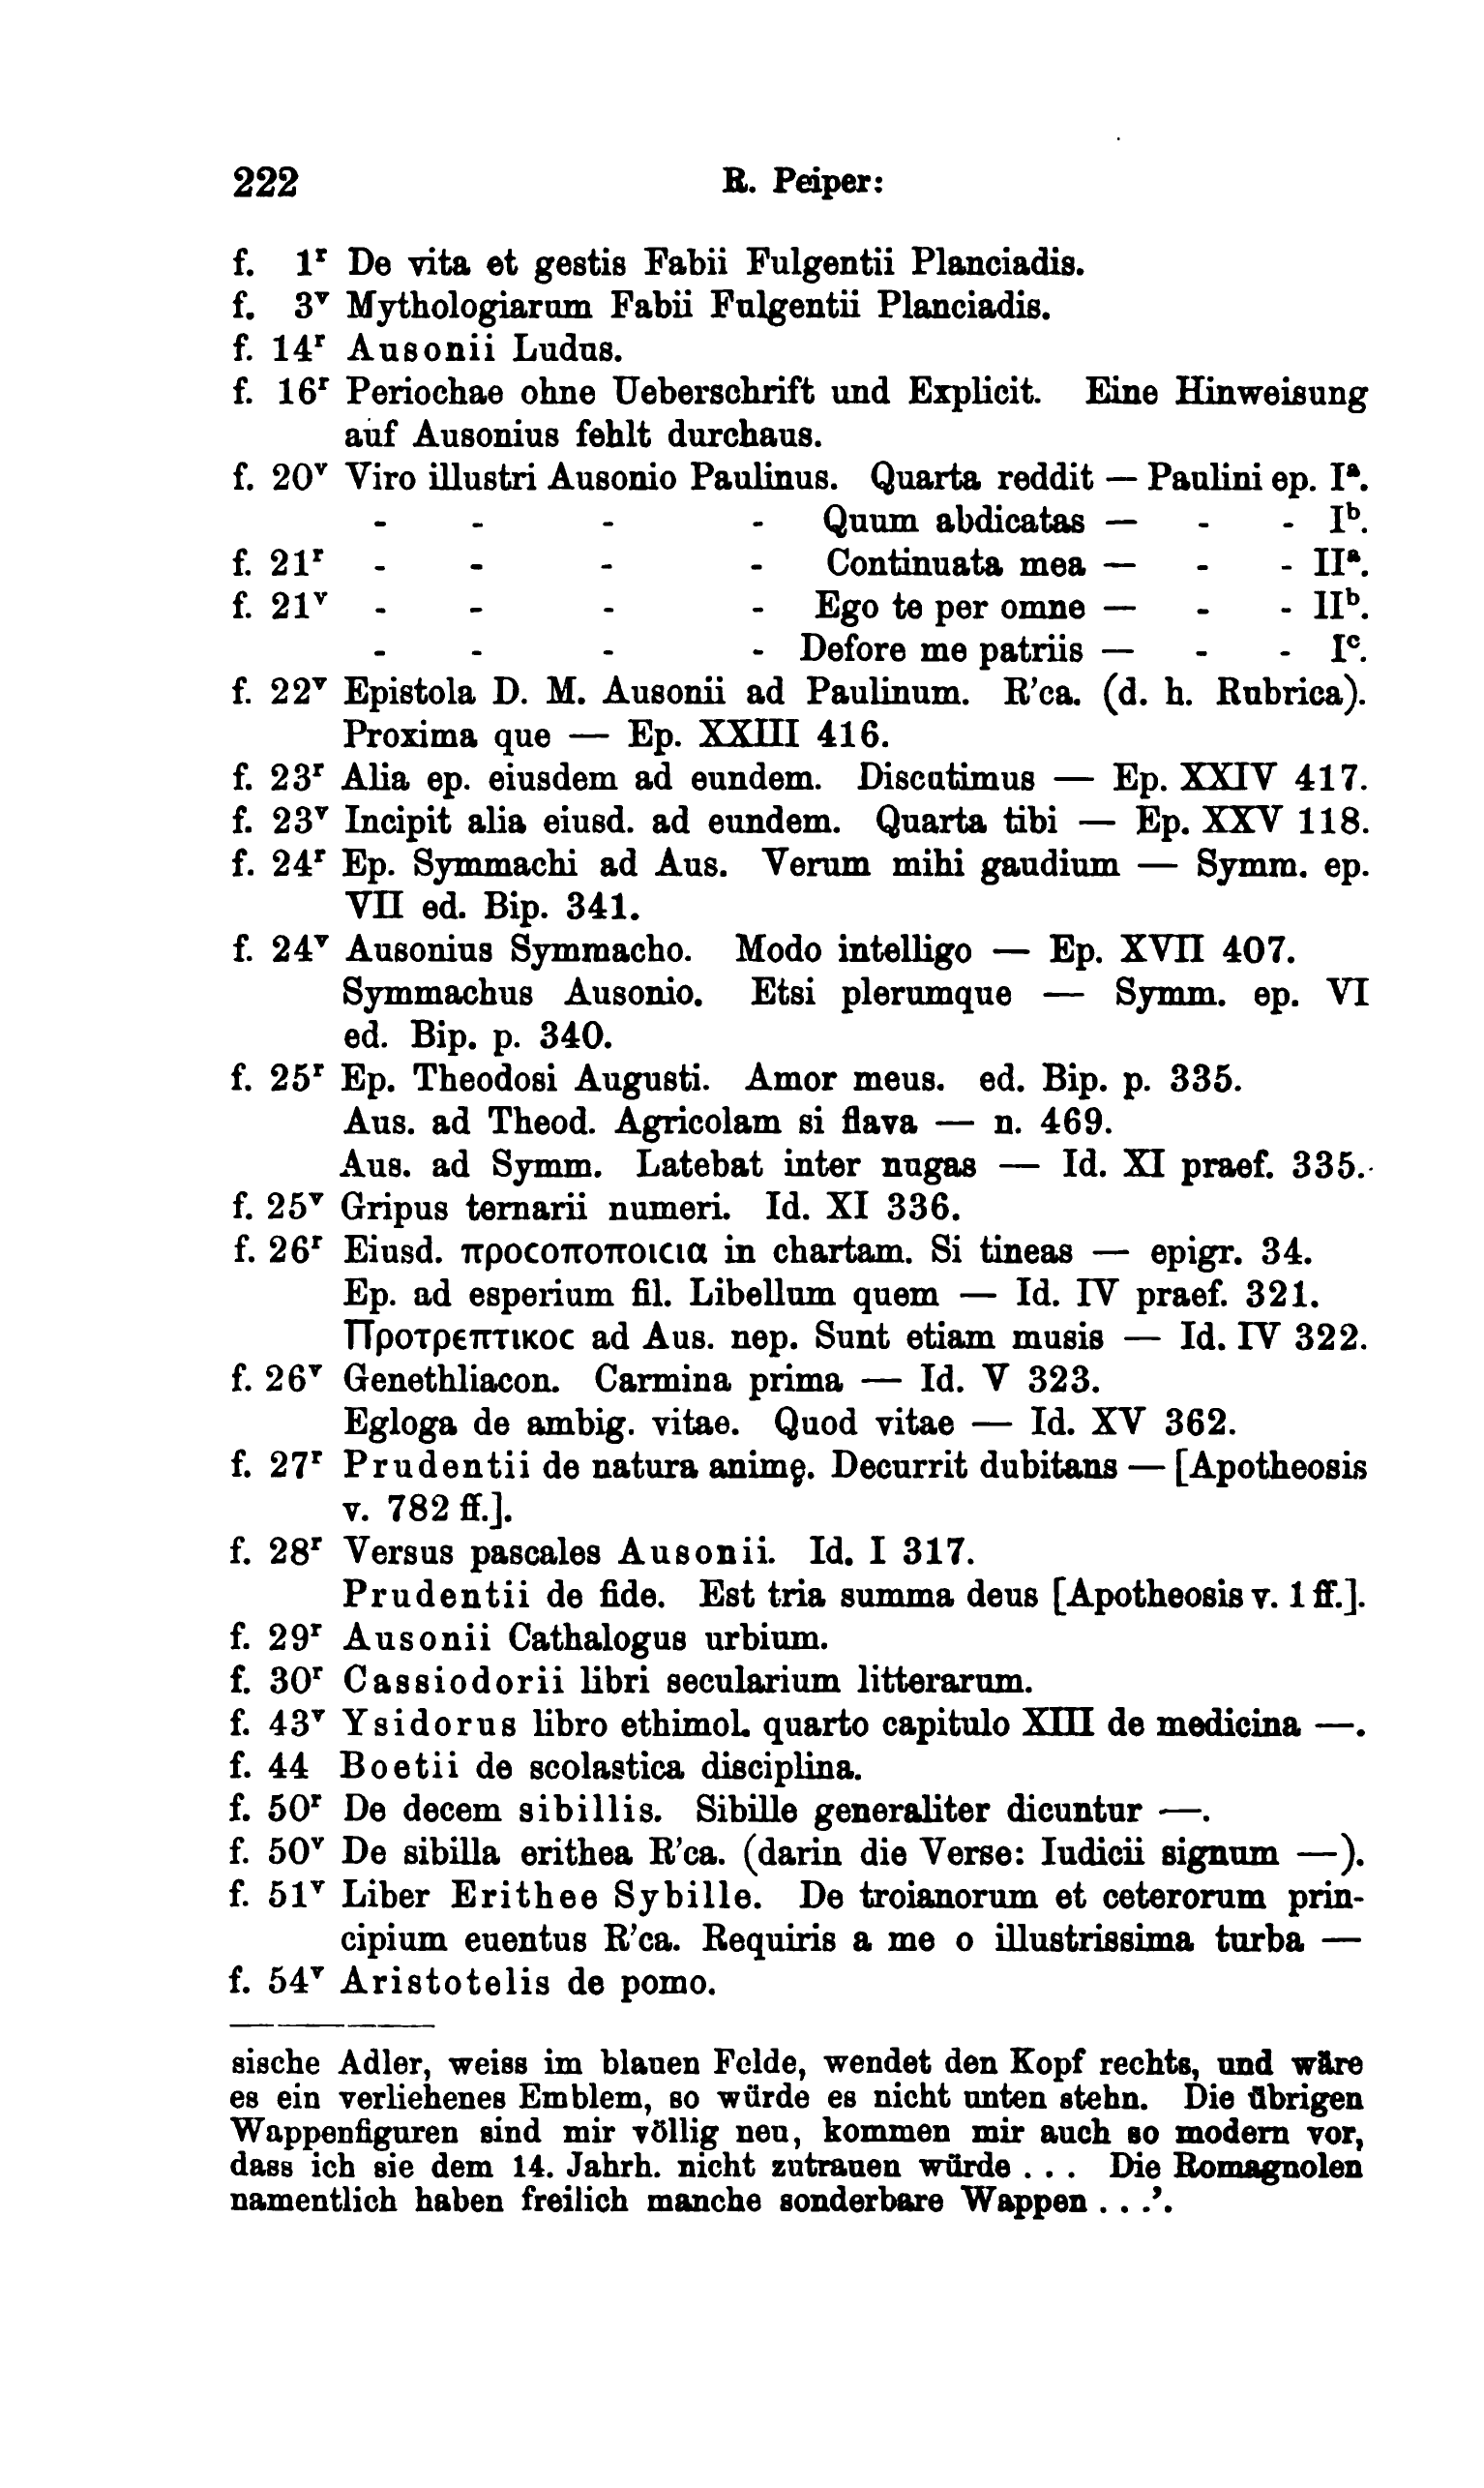 222 R. Peiper:
f. 1ʳ De vita et gestis Fabii Fulgentii Planciadis.
f. 3ᵛ Mythologiarum Fabii Fulgentii Planciadis.
f. 14ʳ Ausonii Ludus.
f. 16ʳ Periochae ohne Ueberschrift und Explicit. Eine Hinweisung
auf Ausonius fehlt durchaus.
f. 20ᵛ Viro illustri Ausonio Paulinus. Quarta reddit — Paulini ep. Iᵃ.
- - - - Quum abdicatas — - - Iᵇ.
f. 21ʳ - - - - Continuata mea — - - IIᵃ.
f. 21ᵛ - - - - Ego te per omne — - - IIᵇ.
- - - - Defore me patriis — - - Iᶜ.
f. 22ᵛ Epistola D. M. Ausonii ad Paulinum. R’ca. (d. h. Rubrica).
Proxima que — Ep. XXIII 416.
f. 23ʳ Alia ep. eiusdem ad eundem. Discutimus — Ep. XXIV 417.
f. 23ᵛ Incipit alia eiusd. ad eundem. Quarta tibi — Ep. XXV 118.
f. 24ʳ Ep. Symmachi ad Aus. Verum mihi gaudium — Symm. ep.
VII ed. Bip. 341.
f. 24ᵛ Ausonius Symmacho. Modo intelligo — Ep. XVII 407.
Symmachus Ausonio. Etsi plerumque — Symm. ep. VI
ed. Bip. p. 340.
f. 25ʳ Ep. Theodosi Augusti. Amor meus. ed. Bip. p. 335.
Aus. ad Theod. Agricolam si flava — n. 469.
Aus. ad Symm. Latebat inter nugas — Id. XI praef. 335.
f. 25ᵛ Gripus ternarii numeri. Id. XI 336.
f. 26ʳ Eiusd. προϲοποποιϲια in chartam. Si tineas — epigr. 34.
Ep. ad esperium fil. Libellum quem — Id. IV praef. 321.
Προτρεπτικοϲ ad Aus. nep. Sunt etiam musis — Id. IV 322.
f. 26ᵛ Genethliacon. Carmina prima — Id. V 323.
Egloga de ambig. vitae. Quod vitae — Id. XV 362.
f. 27ʳ Prudentii de natura animę. Decurrit dubitans — [Apotheosis
v. 782 ff.].
f. 28ʳ Versus pascales Ausonii. Id. I 317.
Prudentii de fide. Est tria summa deus [Apotheosis v. 1 ff.].
f. 29ʳ Ausonii Cathalogus urbium.
f. 30ʳ Cassiodorii libri secularium litterarum.
f. 43ᵛ Ysidorus libro ethimol. quarto capitulo XIII de medicina —.
f. 44 Boetii de scolastica disciplina.
f. 50ʳ De decem sibillis. Sibille generaliter dicuntur —.
f. 50ᵛ De sibilla erithea R’ca. (darin die Verse: Iudicii signum —).
f. 51ᵛ Liber Erithee Sybille. De troianorum et ceterorum prin-
cipium euentus R’ca. Requiris a me o illustrissima turba —
f. 54ᵛ Aristotelis de pomo.
sische Adler, weiss im blauen Felde, wendet den Kopf rechts, und wäre
es ein verliehenes Emblem, so würde es nicht unten stehn. Die übrigen
Wappenfiguren sind mir völlig neu, kommen mir auch so modern vor,
dass ich sie dem 14. Jahrh. nicht zutrauen würde . . . Die Romagnolen
namentlich haben freilich manche sonderbare Wappen . . .’.